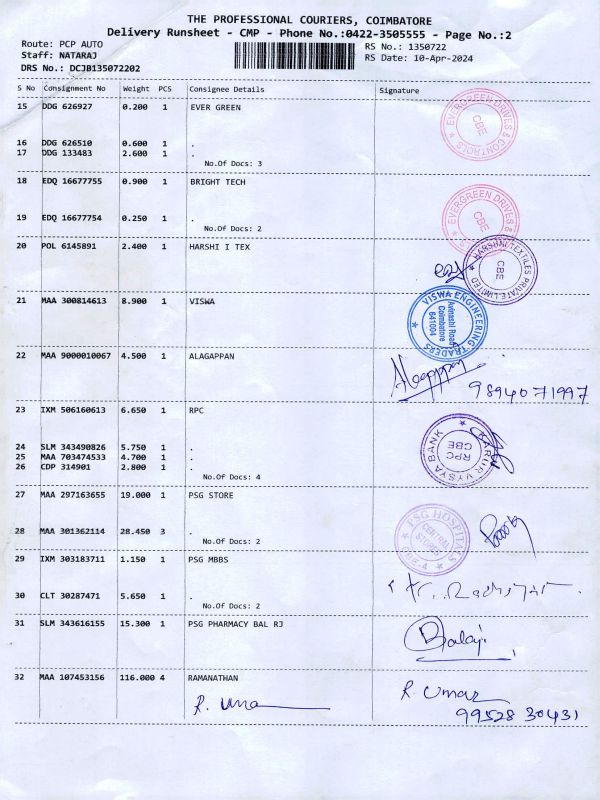 THE PROFESSIONAL COURIERS, COIMBATORE
Delivery Runsheet - CMP - Phone No.:0422-3505555 - Page No.:2
Route: PCP AUTO
RS No.: 1350722
Staff: NATARAJ
RS Date: 10-Apr-2024
DRS No.: DCJB135072202
S No Consignment No Weight PCS Consignee Details Signature
15 DDG 626927 0.200 1 EVER GREEN
EVERGREEN DRIVES CONTROLS CBE
16 DDG 626510 0.600 1 .
17 DDG 133483 2.600 1 .
No.Of Docs: 3
18 EDQ 16677755 0.900 1 BRIGHT TECH
EVERGREEN DRIVES CBE
19 EDQ 16677754 0.250 1 .
No.Of Docs: 2
20 POL 6145891 2.400 1 HARSHI I TEX
HARSHNI TEXTILES PRIVATE LIMITED CBE
21 MAA 300814613 8.900 1 VISWA
VISWA ENGINEERING TRADERS
Avinashi Road
Coimbatore
641004
22 MAA 9000010067 4.500 1 ALAGAPPAN
Alagappan
9894071997
23 IXM 506160613 6.650 1 RPC
KARUR VYSYA BANK
RPC
CBE
24 SLM 343490826 5.750 1 .
25 MAA 703474533 4.700 1 .
26 CDP 314901 2.800 1 .
No.Of Docs: 4
27 MAA 297163655 19.000 1 PSG STORE
PSG HOSPITALS CBE-4
CENTRAL
STORES
28 MAA 301362114 28.450 3 .
No.Of Docs: 2
29 IXM 303183711 1.150 1 PSG MBBS
30 CLT 30287471 5.650 1 .
No.Of Docs: 2
31 SLM 343616155 15.300 1 PSG PHARMACY BAL RJ
Balaji
32 MAA 107453156 116.000 4 RAMANATHAN
R. Umar
99528 30431